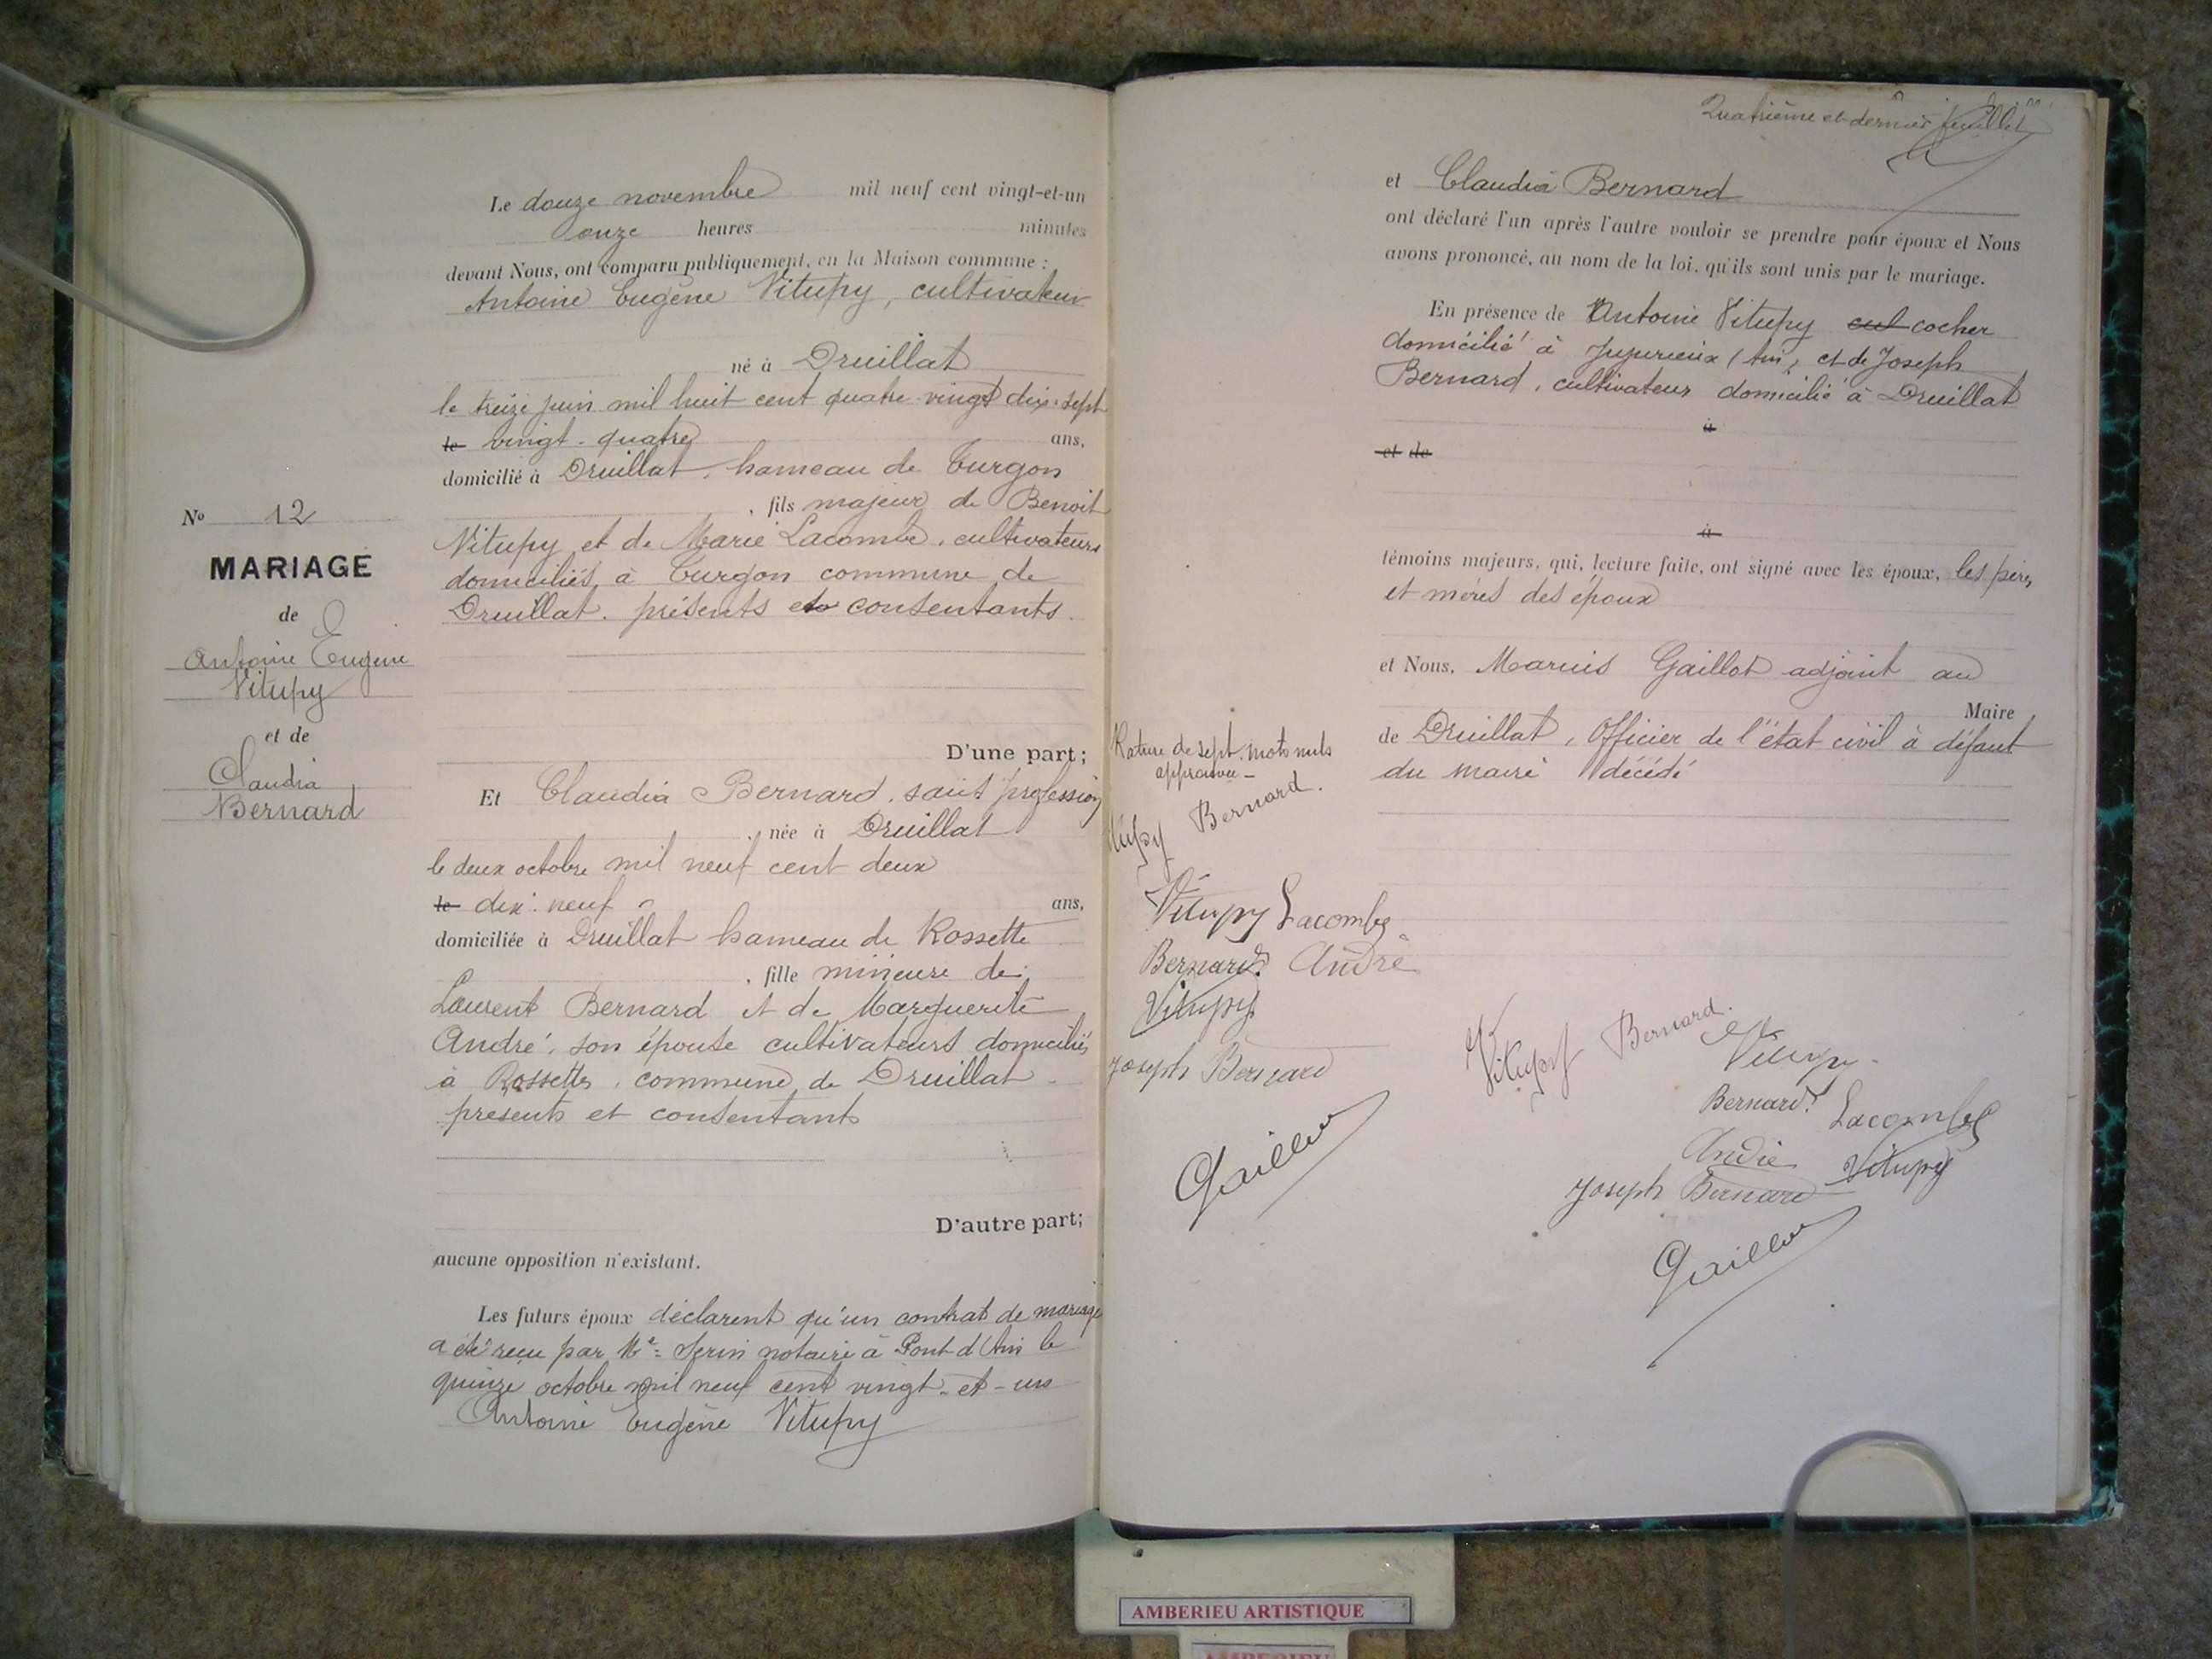 Le douze novembre mil neuf cent vingt-et-un
onze heures minutes
devant Nous, ont comparu publiquement, en la Maison commune :
Antoine Eugène Vitupy, cultivateur
né à Druillat
le treize juin mil huit cent quatre-vingt dix-sept
le vingt-quatre ans,
domicilié à Druillat, hameau de Turgon
, fils majeur de Benoit
Vitupy et de Marie Lacombe, cultivateurs
domiciliés à Turgon commune de
Druillat. présents et consentants.
No 12
MARIAGE
de
Antoine Eugène
Vitupy
et de
Claudia
Bernard
D'une part;
Et Claudia Bernard, sans profession
, née à Druillat
le deux octobre mil neuf cent deux
le dix-neuf ans,
domiciliée à Druillat hameau de Rossette
, fille mineure de
Laurent Bernard et de Marguerite
André, son épouse cultivateurs domiciliés
à Rossette, commune de Druillat
présents et consentants
D'autre part;
aucune opposition n'existant.
Les futurs époux déclarent qu'un contrat de mariage
a été reçu par Me notaire à Pont d'Ain le
quinze octobre mil neuf cent vingt-et-un
Antoine Eugène Vitupy
Quatrième et dernier feuillet
et Claudia Bernard
ont déclaré l'un après l'autre vouloir se prendre pour époux et Nous
avons prononcé, au nom de la loi, qu'ils sont unis par le mariage.
En présence de Antoine Vitupy cul cocher
domicilié à Jujurieux (Ain) et de Joseph
Bernard, cultivateur domicilié à Druillat
à
et de
à
témoins majeurs, qui, lecture faite, ont signé avec les époux, les pères
et mères des époux
et Nous, Marius Gaillot adjoint au
Maire
de Druillat, Officier de l'état civil à défaut
du maire décédé
Rature de sept mots nuls
approuvée -
Vitupy Bernard.
Vitupy Lacombe
Bernard André
Vitupy
Joseph Bernard
Gaillot
Vitupy Bernard.
Vitupy
Bernard Lacombe
André Vitupy
Joseph Bernard
Gaillot
AMBERIEU ARTISTIQUE
AMBERIEU